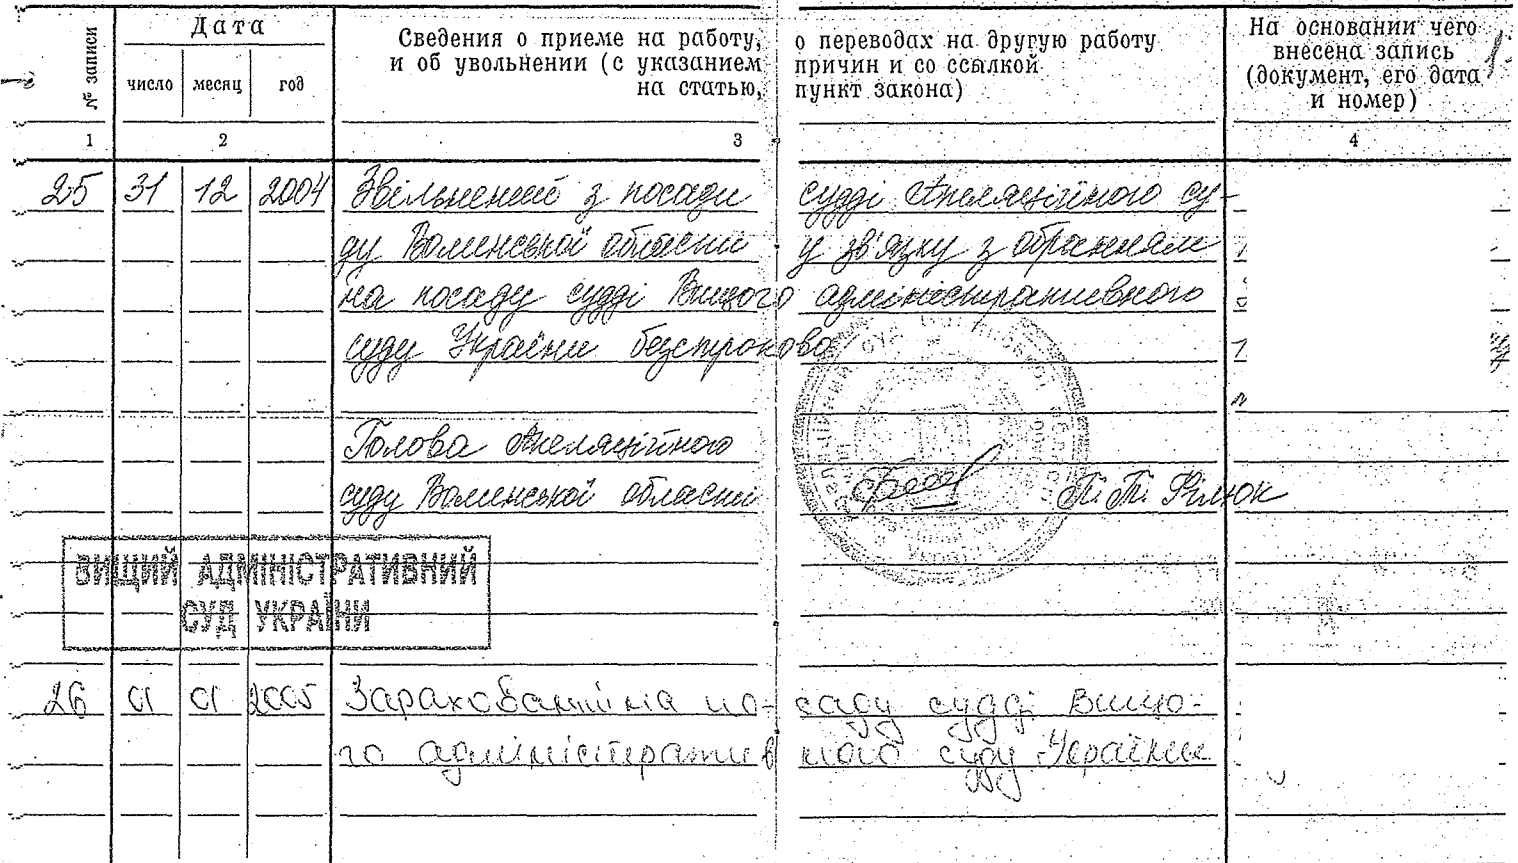 № записи
Дата
число месяц год
Сведения о приеме на работу, о переводах на другую работу
и об увольнении (с указанием причин и со ссылкой
на статью, пункт закона)
На основании чего
внесена запись
(документ, его дата
и номер)
1 2 3 4
25 31 12 2004 Звільнений з посади судді Апеляційного су-
ду Волинської області у зв'язку з обранням
на посаду судді Вищого адміністративного
суду України безстроково
Голова Апеляційного
суду Волинської області Філюк
ВИЩИЙ АДМІНІСТРАТИВНИЙ
СУД УКРАЇНИ
26 01 01 2005 Зарахований на по-саду судді Вищо-
го адміністративного суду України